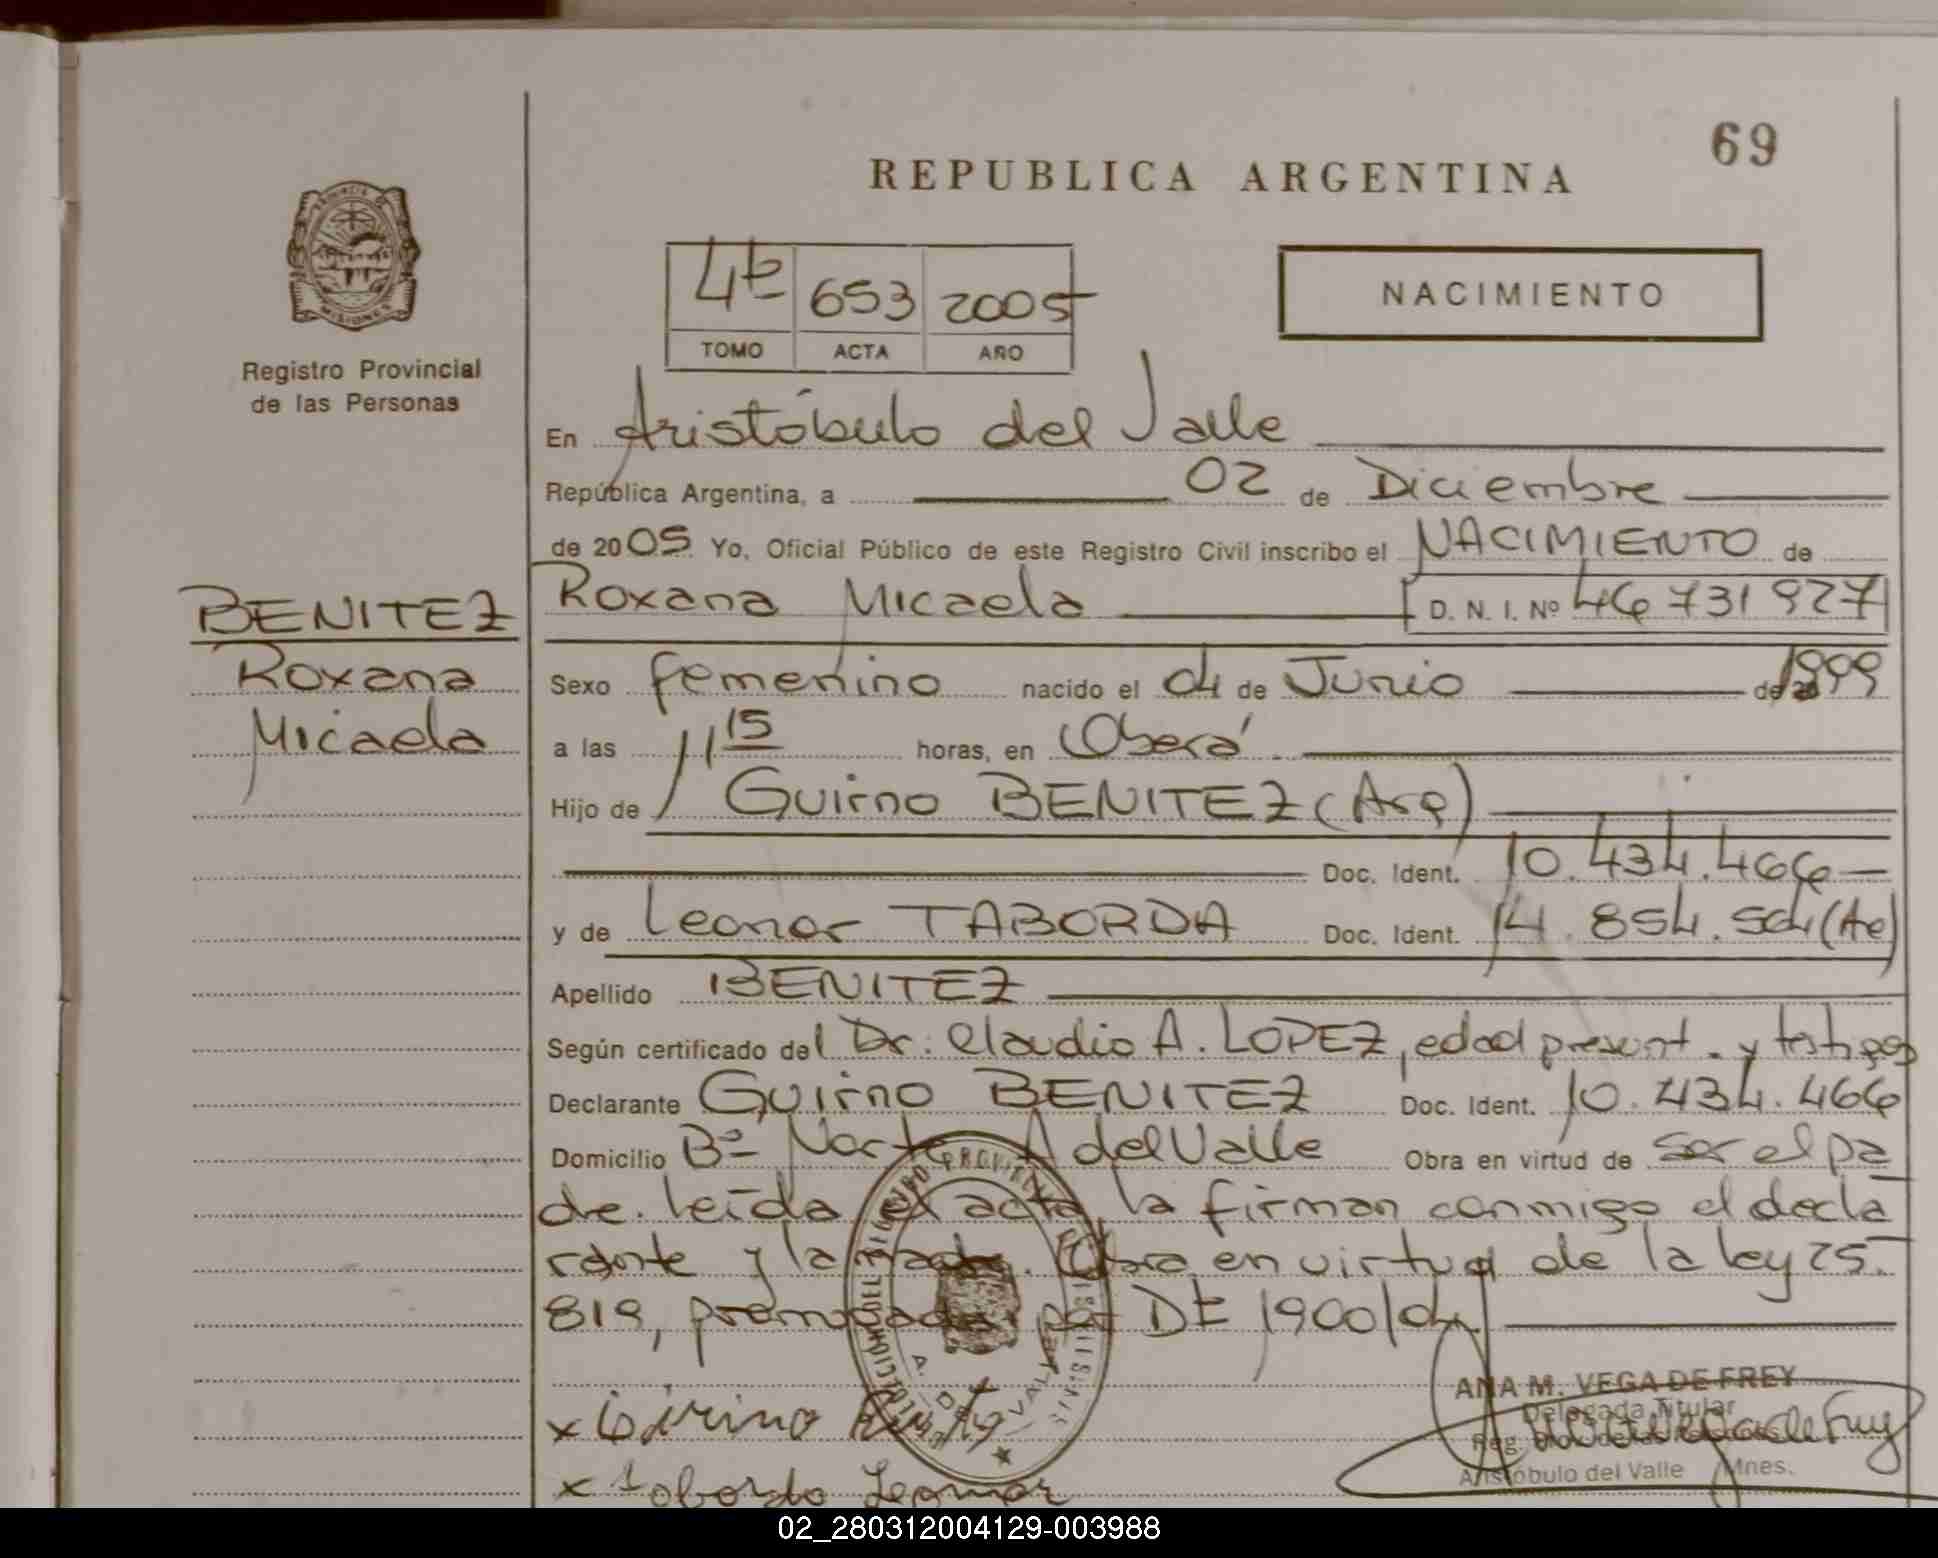 69
REPUBLICA ARGENTINA
PROVINCIA
MISIONES
Registro Provincial
de las Personas
4tº 653 2005
TOMO ACTA AÑO
NACIMIENTO
En Aristóbulo del Valle
República Argentina, a 02 de Diciembre
de 2005 Yo, Oficial Público de este Registro Civil inscribo el NACIMIENTO de
BENITEZ
Roxana
Micaela
Roxana Micaela D. N. I. Nº 46731927
Sexo femenino nacido el 04 de Junio de 1999
a las 11 15 horas, en Oberá
Hijo de Guirno BENITEZ (Arg)
Doc. Ident. 10.434.466
y de Leonor TABORDA Doc. Ident. 14.854.504 (Ae)
Apellido BENITEZ
Según certificado del Dr. Claudio A. LOPEZ, edad present. y testigos
Declarante Guirno BENITEZ Doc. Ident. 10.434.466
Domicilio Bº Norte A del Valle Obra en virtud de ser el pa
dre. leída el acta, la firman conmigo el decla
rante y la madre. Obra en virtud de la ley 25.
819, promulgada por DE 1900/04
ANA M. VEGA DE FREY
Delegada Titular
Aristóbulo del Valle Mnes.
x
x Taborda Leonor
02_280312004129-003988